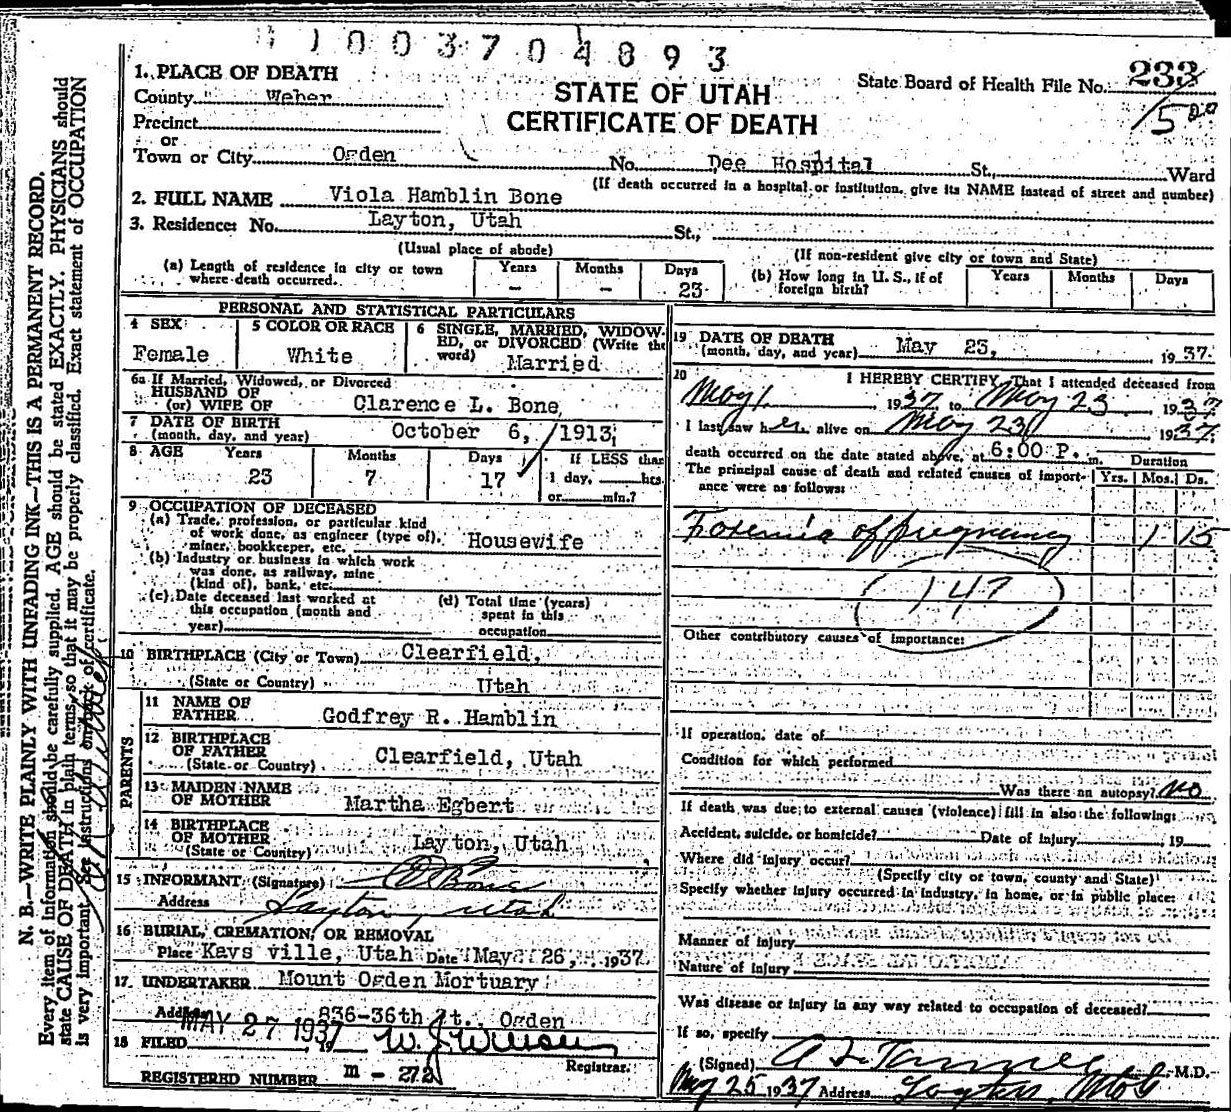 1003704893
1. PLACE OF DEATH
County Weber
STATE OF UTAH
CERTIFICATE OF DEATH
State Board of Health File No. 233
15
Precinct
or
Town or City Ogden No. Dee Hospital St., Ward
(If death occurred in a hospital or institution, give its NAME instead of street and number)
2. FULL NAME Viola Hamblin Bone
3. Residence: No. Layton, Utah St.,
(Usual place of abode) (If non-resident give city or town and State)
(a) Length of residence in city or town where death occurred. Years - Months - Days 23
(b) How long in U. S., if of foreign birth? Years Months Days
PERSONAL AND STATISTICAL PARTICULARS
4 SEX Female
5 COLOR OR RACE White
6 SINGLE, MARRIED, WIDOWED, or DIVORCED (Write the word) Married
6a If Married, Widowed, or Divorced
HUSBAND OF
(or) WIFE OF Clarence L. Bone
7 DATE OF BIRTH
(month, day, and year) October 6, 1913
8 AGE Years 23 Months 7 Days 17 If LESS than 1 day, hrs. or min.?
9 OCCUPATION OF DECEASED
(a) Trade, profession, or particular kind
of work done, as engineer (type of), Housewife
miner, bookkeeper, etc.
(b) Industry or business in which work
was done, as railway, mine
(kind of), bank, etc.
(c) Date deceased last worked at
this occupation (month and
year)
(d) Total time (years)
spent in this
occupation
10 BIRTHPLACE (City or Town) Clearfield,
(State or Country) Utah
PARENTS
11 NAME OF
FATHER Godfrey R. Hamblin
12 BIRTHPLACE
OF FATHER Clearfield, Utah
(State or Country)
13 MAIDEN NAME
OF MOTHER Martha Egbert
14 BIRTHPLACE
OF MOTHER Layton, Utah
(State or Country)
15 INFORMANT (Signature) Bone
Address Layton, Utah
16 BURIAL, CREMATION, OR REMOVAL
Place Kays ville, Utah Date May 26, 1937
17 UNDERTAKER Mount Ogden Mortuary
Address 836-36th St. Ogden
18 FILED MAY 27 1937 19
Registrar.
REGISTERED NUMBER m - 272
19 DATE OF DEATH
(month, day, and year) May 23, 1937.
20 I HEREBY CERTIFY, That I attended deceased from
May 1 1937 to May 23 1937
I last saw her alive on May 23 1937.
death occurred on the date stated above, at 6:00 P. m.
The principal cause of death and related causes of importance were as follows:
Duration
Yrs. Mos. Ds.
Toxemia of pregnancy 1 15
147
Other contributory causes of importance:
If operation, date of
Condition for which performed
Was there an autopsy? No
If death was due to external causes (violence) fill in also the following:
Accident, suicide, or homicide? Date of injury 19
Where did injury occur?
(Specify city or town, county and State)
Specify whether injury occurred in industry, in home, or in public place:
Manner of injury
Nature of injury
Was disease or injury in any way related to occupation of deceased?
If so, specify
(Signed) M.D.
May 25 1937 Address Layton, Utah
N. B.—WRITE PLAINLY WITH UNFADING INK—THIS IS A PERMANENT RECORD.
Every item of information should be carefully supplied. AGE should be stated EXACTLY. PHYSICIANS should
state CAUSE OF DEATH in plain terms, so that it may be properly classified. Exact statement of OCCUPATION
is very important. See instructions on back of certificate.